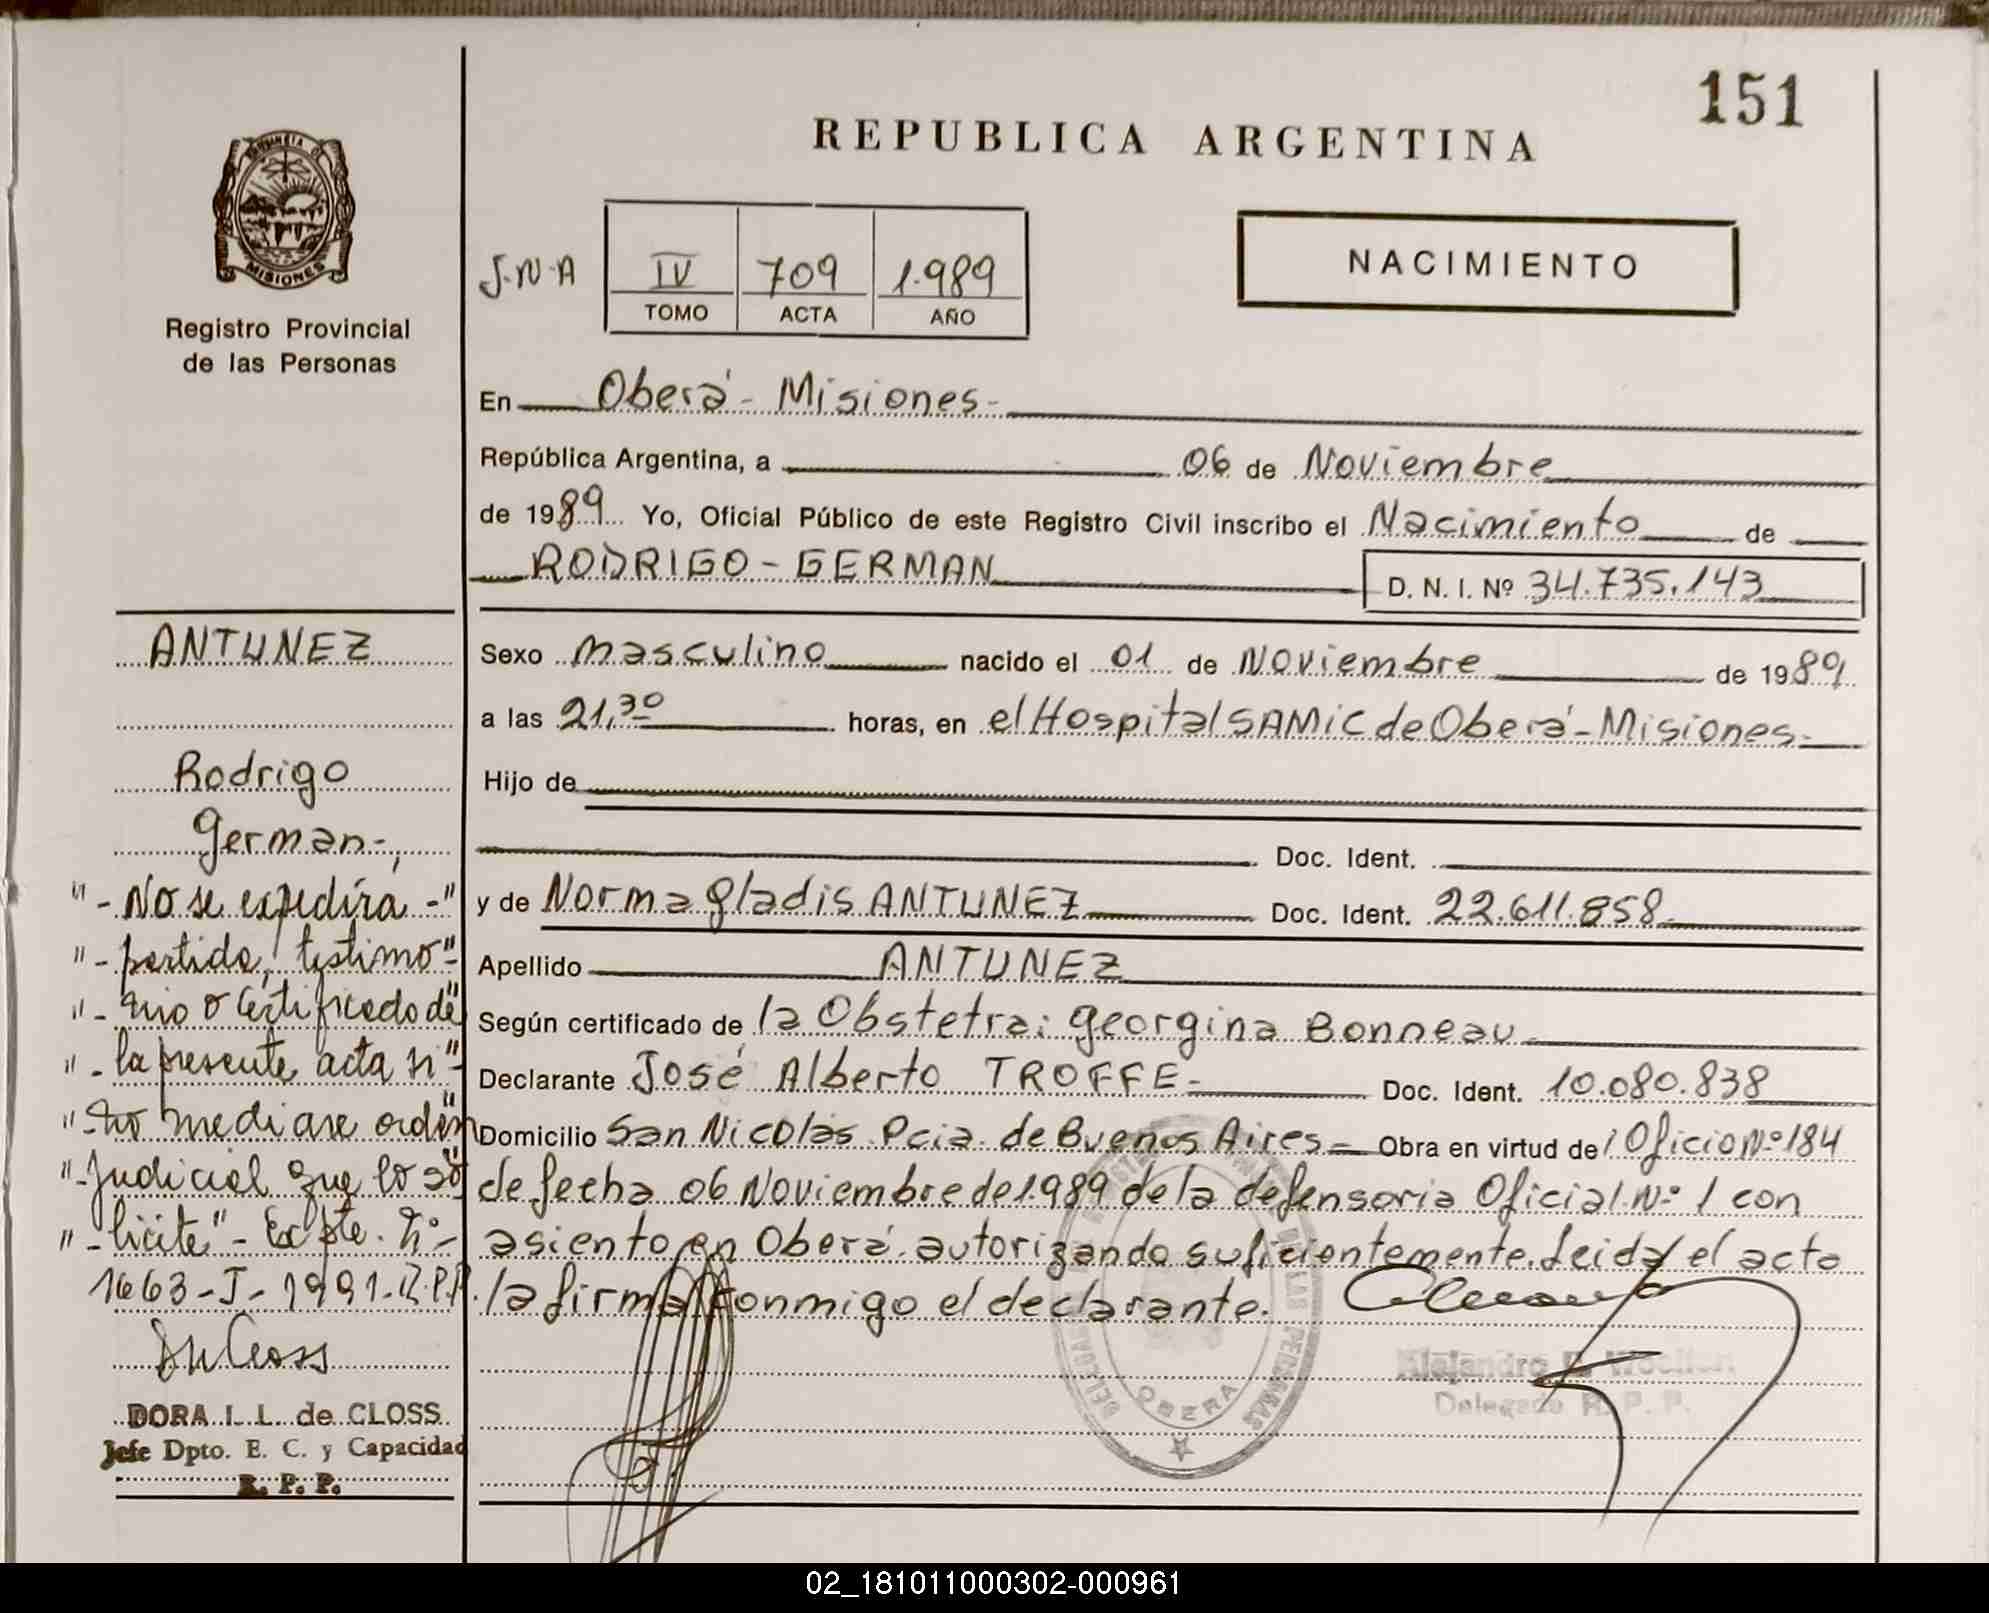 151
REPUBLICA ARGENTINA
PROVINCIA DE
MISIONES
Registro Provincial
de las Personas
J.N.A
IV 709 1.989
TOMO ACTA AÑO
NACIMIENTO
En Oberá - Misiones-
República Argentina, a 06 de Noviembre
de 1989 Yo, Oficial Público de este Registro Civil inscribo el Nacimiento de
RODRIGO - GERMAN
D. N. I. Nº 34.735.143
ANTUNEZ
Rodrigo
German-,
"- No se expedirá -"
"- partida, testimo"-
"- nio o certificado de"
"- la presente acta si"-
"- no mediare orden"
"- Judicial que lo so"
"- licite" - Expte. Nº-
1663-J-1991-R.P.P.
DORA I. L. de CLOSS
Jefe Dpto. E. C. y Capacidad
R. P. P.
Sexo masculino nacido el 01 de Noviembre de 1989
a las 21,30 horas, en el Hospital SAMIC de Oberá - Misiones-
Hijo de
Doc. Ident.
y de Norma Gladis ANTUNEZ Doc. Ident. 22.611.858
Apellido ANTUNEZ
Según certificado de la Obstetra: Georgina Bonneau
Declarante José Alberto TROFFE- Doc. Ident. 10.080.838
Domicilio San Nicolás Pcia. de Buenos Aires- Obra en virtud de Oficio Nº 184
de fecha 06 Noviembre de 1.989 de la defensoria Oficial Nº 1 con
asiento en Oberá autorizando suficientemente. Leida el acta
la firma conmigo el declarante.
DE LAS PERSONAS
OBERA
Alejandro
Delegado R. P. P.
02_181011000302-000961